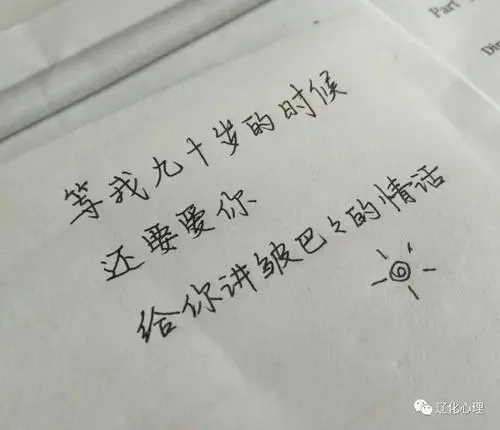 等我九十岁的时候
还要爱你
给你讲皱巴々的情话
Part
Dis
辽化心理